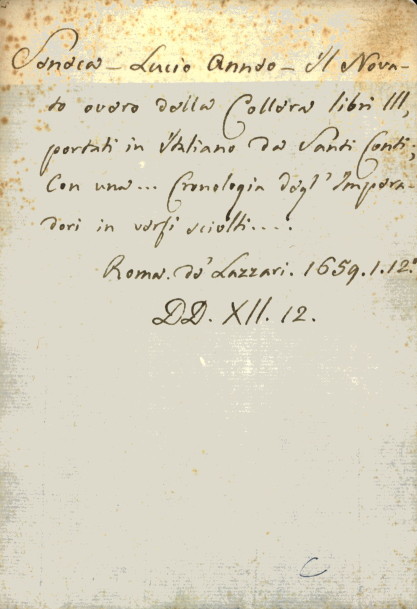 Seneca - Lucio Anneo - il Nova-
to overo della Collera libri III,
portati in Italiano da Santi Conti;
Con una... Cronologia degl' Impera-
dori in versi sciolti....
Roma. de' Lazzari. 1659. 1. 12.°
DD. XII. 12.
C